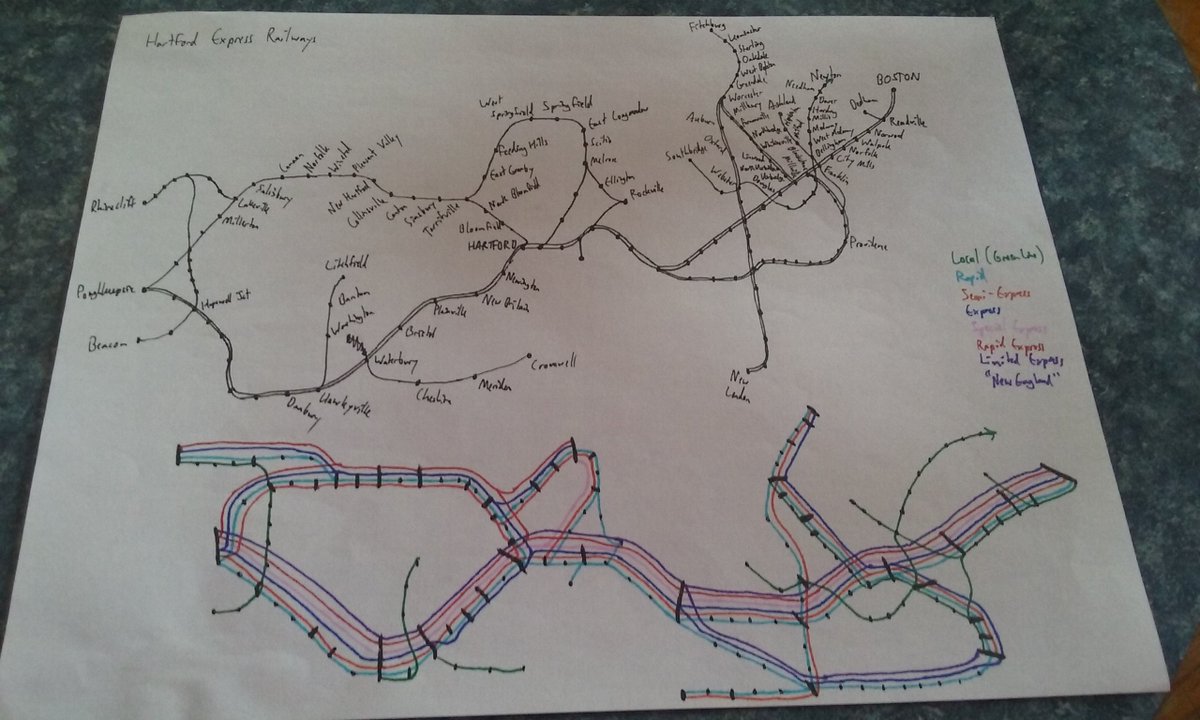 Hartford Express Railways
Fitchburg
Leominster
Sterling
Oakdale
West Boylston
Greendale
Worcester
Millbury
Auburn
Oxford
Webster
Southbridge
Ashland
Needham
Newton
Dover
Harding
Millis
Medway
West Medway
Bellingham
BOSTON
Dedham
Readville
Norwood
Walpole
Norfolk
City Mills
Franklin
Douglas
Providence
New
London
West
Springfield
Springfield
East Longmeadow
Scitis
Melrose
Ellington
Rockville
Feeding Hills
East Granby
North Bloomfield
Bloomfield
HARTFORD
Tariffville
Simsbury
Canton
Collinsville
New Hartford
Pleasant Valley
Winsted
Norfolk
Canaan
Salisbury
Lakeville
Millerton
Rhinecliff
Poughkeepsie
Hopewell Jct
Beacon
Litchfield
Bantam
Washington
Newington
New Britain
Plainville
Bristol
Waterbury
Cromwell
Meriden
Cheshire
Hawleyville
Danbury
Local (Green Line)
Rapid
Semi-Express
Express
Special Express
Rapid Express
Limited Express
"New England"